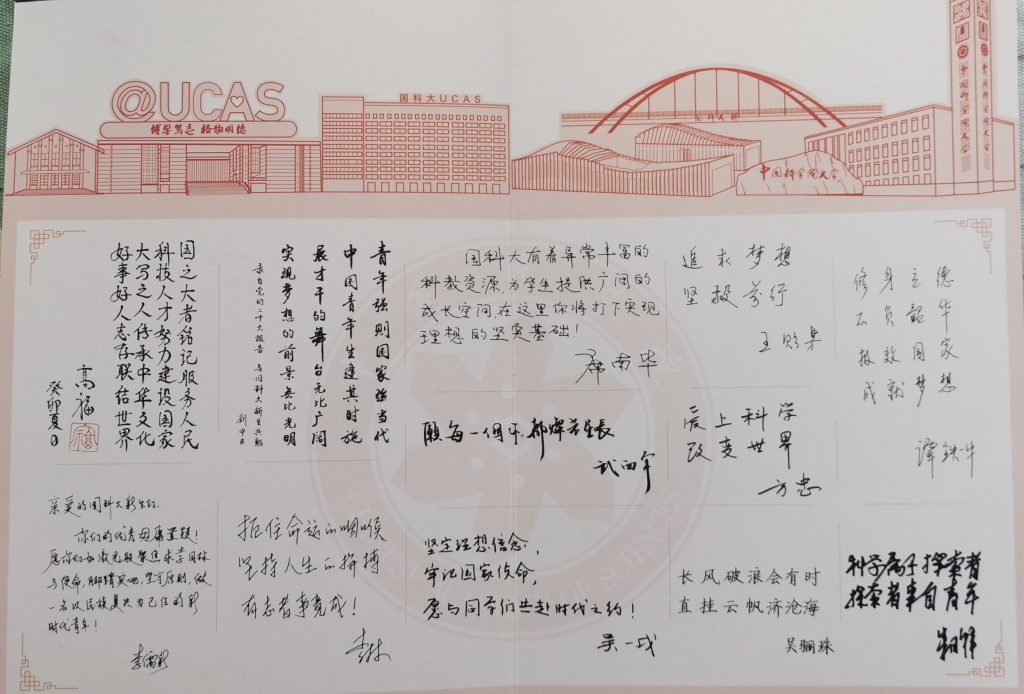 @UCAS
博学笃志 格物明德
国科大UCAS
中国科学院大学
中国科学院大学
国之大者铭记服务人民
科技人才努力建设国家
大写之人传承中华文化
好事好人志存联结世界
高福
癸卯夏日
青年强则国家强当代
中国青年生逢其时施
展才干的舞台无比广阔
实现梦想的前景无比光明
录自党的二十大报告 与国科大新生共勉
国科大有着异常丰富的
科教资源为学生提供广阔的
成长空间在这里你将打下实现
理想的坚实基础!
席南华
追求梦想
坚毅前行
王贻芳
修身立德
不负韶华
报效国家
成就梦想
谭铁牛
愿每一個你都燦若星辰
武向平
爱上科学
改变世界
方忠
亲爱的国科大新生们:
你们的优秀毋庸置疑!
愿你们如激光般聚焦求学目标
与使命,脚踏实地,坚守原则,做
一名以民族复兴为己任的新
时代青年!
李儒新
扼住命运的咽喉
坚持人生的拼搏
有志者事竟成!
坚定理想信念,
牢记国家使命,
愿与同学们共赴时代之约!
吴一戎
长风破浪会有时
直挂云帆济沧海
吴骊珠
科学属于探索者
探索者来自青年
朱日祥